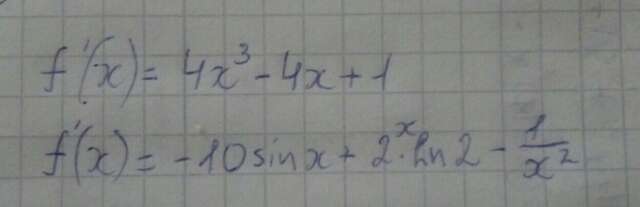 f'(x) = 4x³ - 4x + 1
f'(x) = -10 sin x + 2ˣ · ln 2 - 1/x²